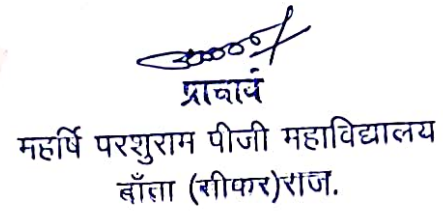 प्राचार्य
महर्षि परशुराम पीजी महाविद्यालय
बाँता (सीकर)राज.